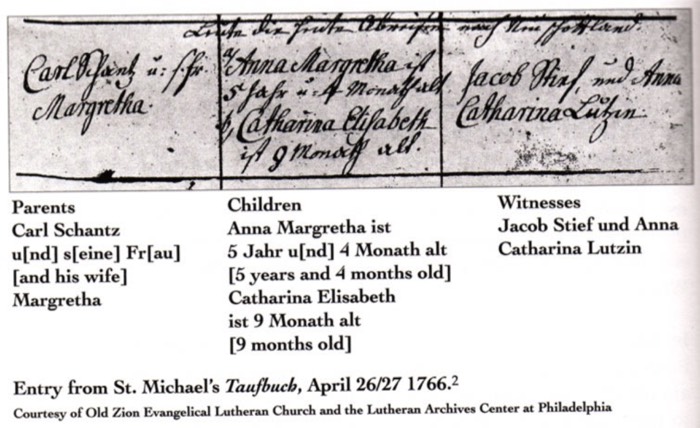 Leute die heute Abreisen nach Neu Schottland.
Carl Schantz u: s. fr.
Margretha.
a, Anna Margretha ist
5 Jahr u. 4 Monath alt
b, Catharina Elisabeth
ist 9 Monath alt.
Jacob Stief, und Anna
Catharina Lutzin
Parents
Carl Schantz
u[nd] s[eine] Fr[au]
[and his wife]
Margretha
Children
Anna Margretha ist
5 Jahr u[nd] 4 Monath alt
[5 years and 4 months old]
Catharina Elisabeth
ist 9 Monath alt
[9 months old]
Witnesses
Jacob Stief und Anna
Catharina Lutzin
Entry from St. Michael's Taufbuch, April 26/27 1766.2
Courtesy of Old Zion Evangelical Lutheran Church and the Lutheran Archives Center at Philadelphia